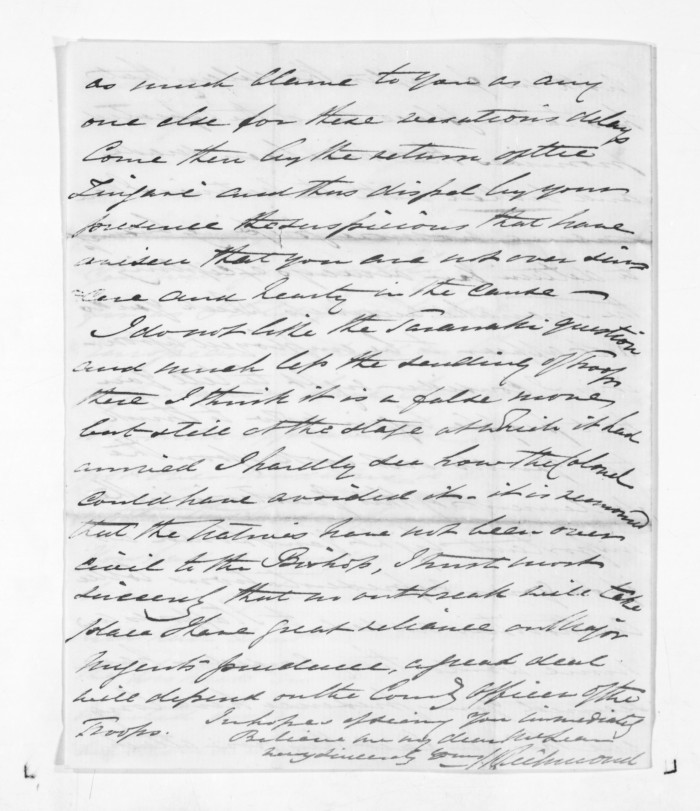 as much blame to you as any
one else for these vexatious delays
Come then by the return of the
Zingari and thus dispel by your
presence the suspicious that have
arisen that you are not over sin
cere and hearty in the cause —
I do not like the Taranaki question
and much less the sending of Troops
there I think it is a false move,
but still at the stage at which it had
arrived I hardly see how the Colonel
could have avoided it - it is rumoured
that the Natives have not been over
civil to the Bishop, I trust most
sincerely that no outbreak will take
place I have great reliance on Major
Nugent's prudence, a great deal
will depend on the Comdg officer of the
Troops. In hopes of seeing you immediately
Believe me my dear McLean
very sincerely yours
Richmond